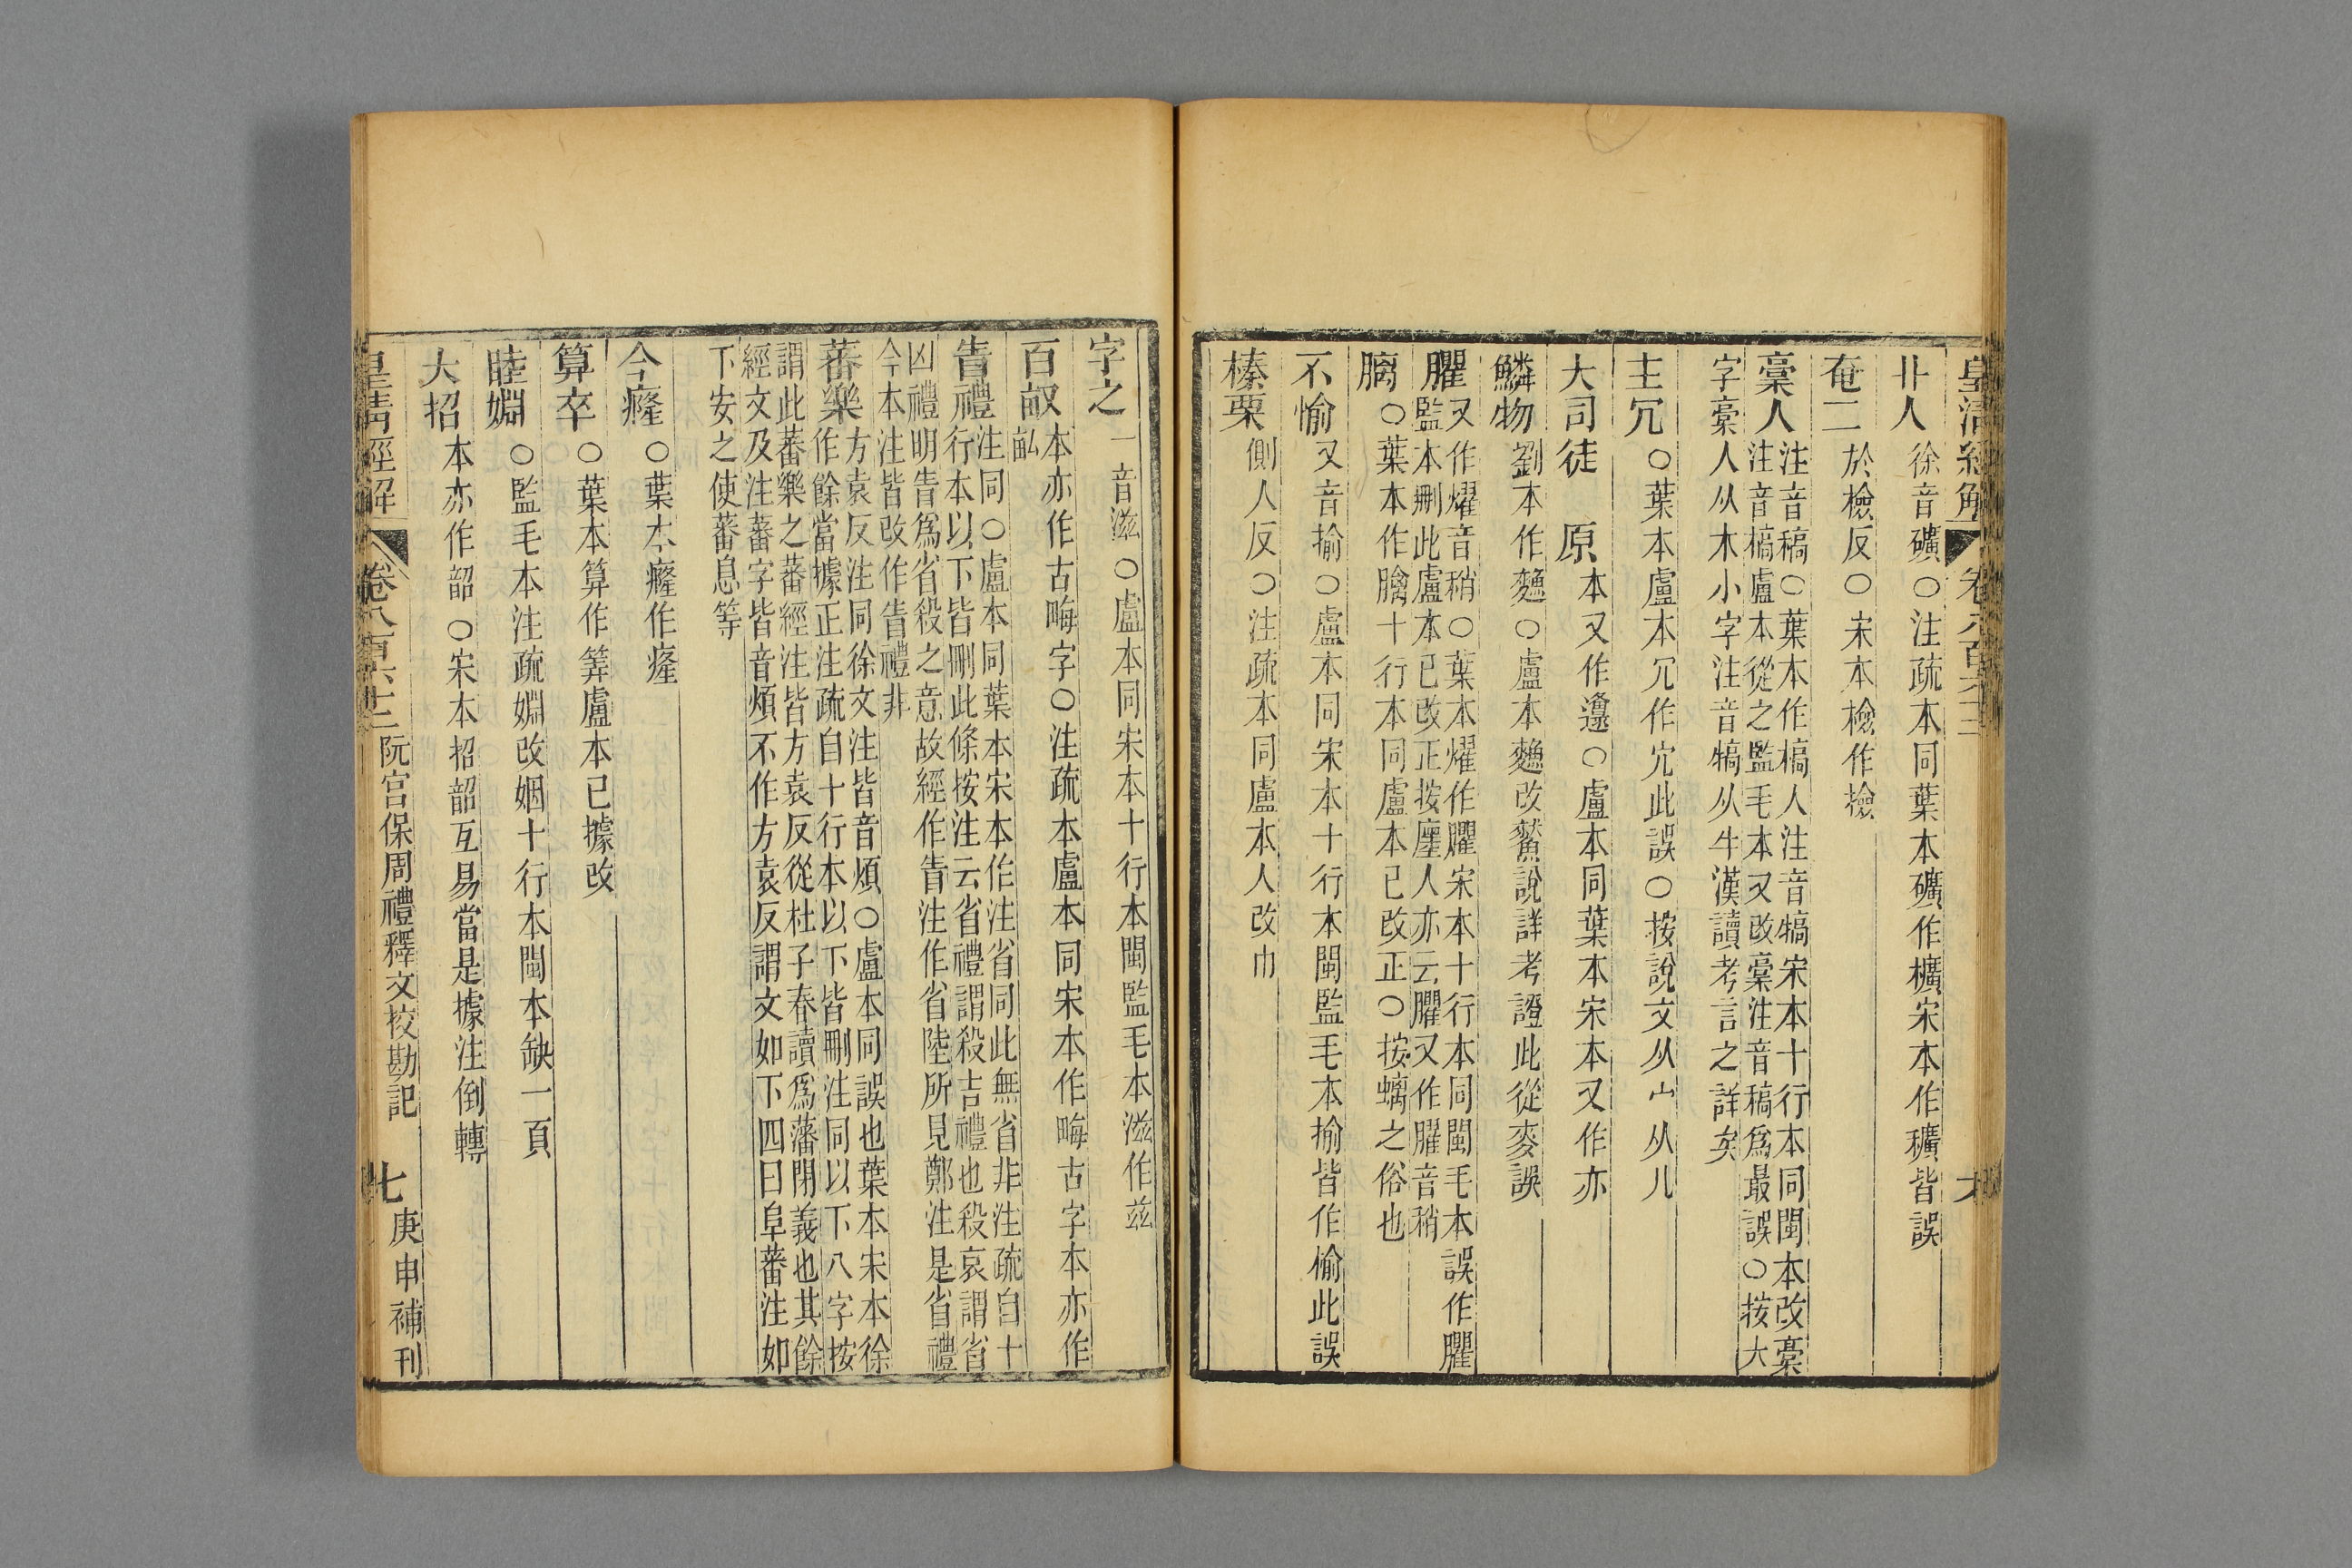 皇清經解 卷八百六十二 六
卝人 徐音礦○注疏本同葉本礦作櫎宋本作穬皆誤
奄二 於檢反○宋本檢作撿
稾人 注音稿○葉本作槁人注音犒宋本十行本同閩本改稾
注音槁盧本從之監毛本又改稾注音稿爲最誤○按大
字稾人从木小字注音犒从牛漢讀考言之詳矣
主冗 ○葉本盧本冗作宂此誤○按說文从宀从儿
大司徒 原 本又作邍○盧本同葉本宋本又作亦
鱗物 劉本作䴡○盧本䴡改鱉說詳考證此從麥誤
臞 又作燿音稍○葉本燿作臞宋本十行本同閩毛本誤作臞
監本刪此盧本已改正按廛人亦云臞又作臞音稍
脶 ○葉本作膓十行本同盧本已改正○按蠣之俗也
不愉 又音揄○盧本同宋本十行本閩監毛本揄皆作偷此誤
榛栗 側人反○注疏本同盧本人改巾
字之 一音滋○盧本同宋本十行本閩監毛本滋作兹
百㽗 本亦作古畮字○注疏本盧本同宋本作畮古字本亦作
畆
眚禮 注同○盧本同葉本宋本作注省同此無省非注疏自十
行本以下皆刪此條按注云省禮謂殺吉禮也殺哀謂省
凶禮明眚爲省殺之意故經作眚注作省陸所見鄭注是省禮
今本注皆改作眚禮非
蕃樂 方袁反注同徐文注皆音煩○盧本同誤也葉本宋本徐
作餘當據正注疏自十行本以下皆刪注同以下八字按
謂此蕃樂之蕃經注皆方袁反從杜子春讀爲藩閉義也其餘
經文及注蕃字皆音煩不作方袁反謂文如下四曰阜蕃注如
下安之使蕃息等
今癃 ○葉本癃作㾭
算卒 ○葉本算作筭盧本已據改
睦婣 ○監毛本注疏婣改姻十行本閩本缺一頁
大招 本亦作韶○宋本招韶互易當是據注倒轉
皇清經解 卷八百六十二 阮宫保周禮釋文挍勘記 七 庚申補刊